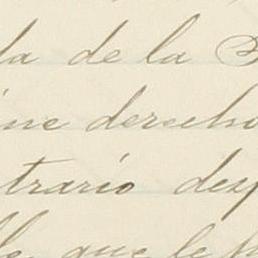 da de la
ine derecho
trario des
que le